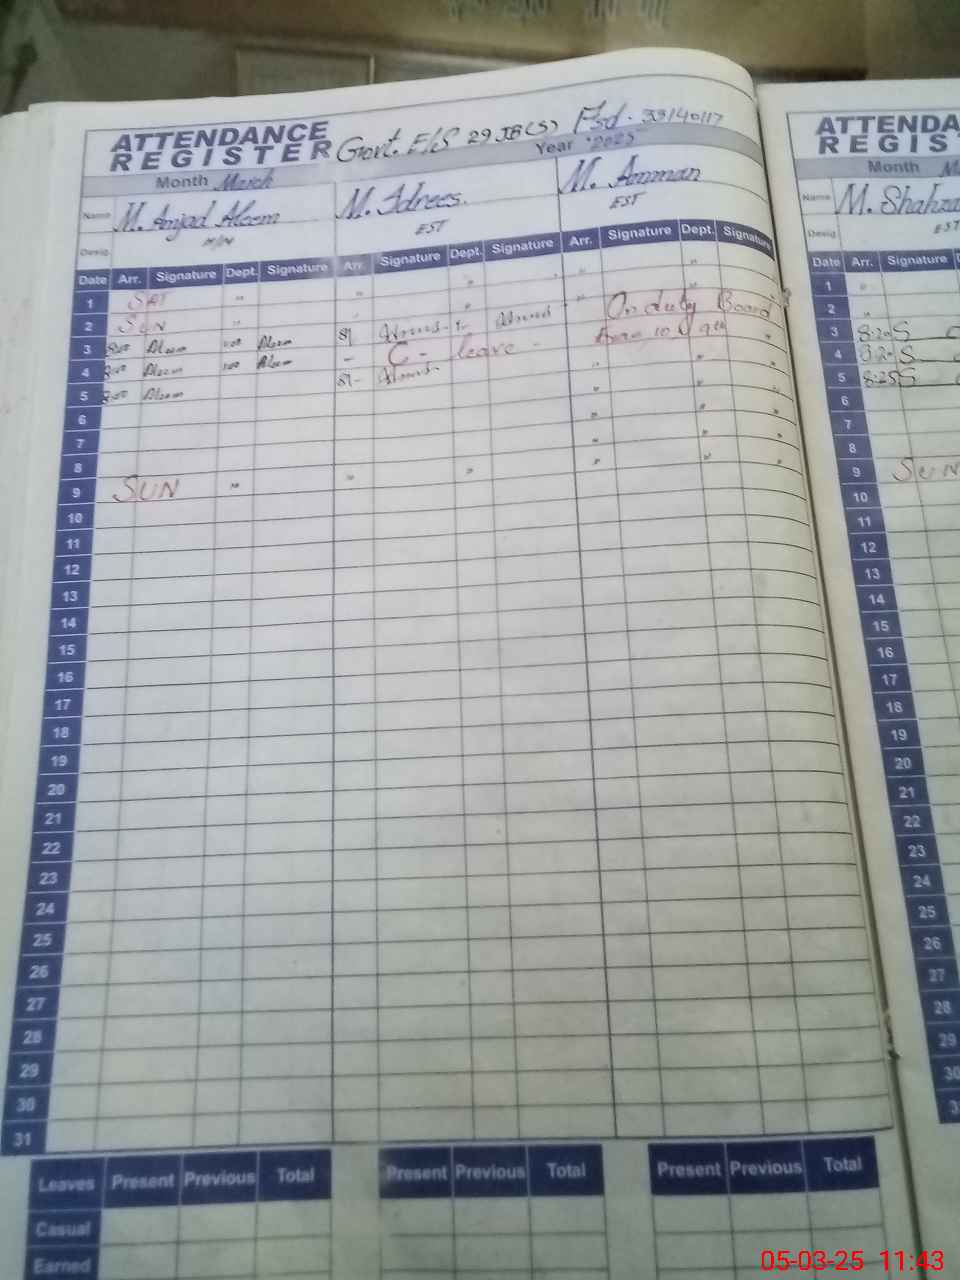 ATTENDANCE REGISTER Govt. E/S 29 JB(S) Fsd. 33140117
Month March Year "2025"
Name M. Amjad Aleem M. Idrees. M. Amman
Desig. EST EST
Date Arr. Signature Dept. Signature Arr. Signature Dept. Signature Arr. Signature Dept. Signature
1 SAT " " " " "
2 SUN " " " "
3 8:00 Aleem 1:00 Aleem 8/- On duty Board
4 8:00 Aleem 1:00 Aleem - C - leave - 10 9th
5 8:00 Aleem 8/-
6 " " "
7 " " "
8 " " "
9 SUN " " " " " "
10
11
12
13
14
15
16
17
18
19
20
21
22
23
24
25
26
27
28
29
30
31
Leaves Present Previous Total Present Previous Total Present Previous Total
Casual
Earned
ATTENDA
REGIS
Month
Name M. Shahza
Desig. EST
Date Arr. Signature
1 "
2 "
3 8:20 S
4 8:20 S
5 8:25 S
6
7
8
9 SUN
10
11
12
13
14
15
16
17
18
19
20
21
22
23
24
25
26
27
28
29
30
05-03-25 11:43